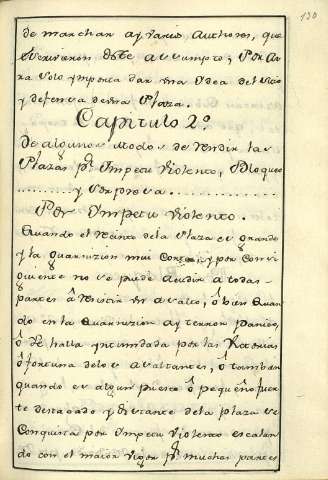 130
de marchan ay varios Authores, que
escrivieron sobre este assumpto, y Por aora
solo ymporta dar una Ydea del sitio
y defensa de una Plaza.
Capitulo 2º
De algunos Modos de Rendir las
Plazas pr. Ympetu Violento, Bloqueo
y Sorpresa.
Por Ympetu Violento.
Quando el recinto de la Plaza es grande
y la guarnizion mui Corta, y por Consi
guiente no se puede acudir a todas
partes â Resistir un asalto, ô bien Quan
do en la Guarnizion ay terror Panico,
ô se halla yntimidada por las Victorias
ô fortuna de los asaltantes, ô tambien
quando es algun puesto ô pequeño fuer
te destacado y distante de la plaza se
Conquista por Ympetu Violento escalan
do con el maior vigor pr. muchas partes